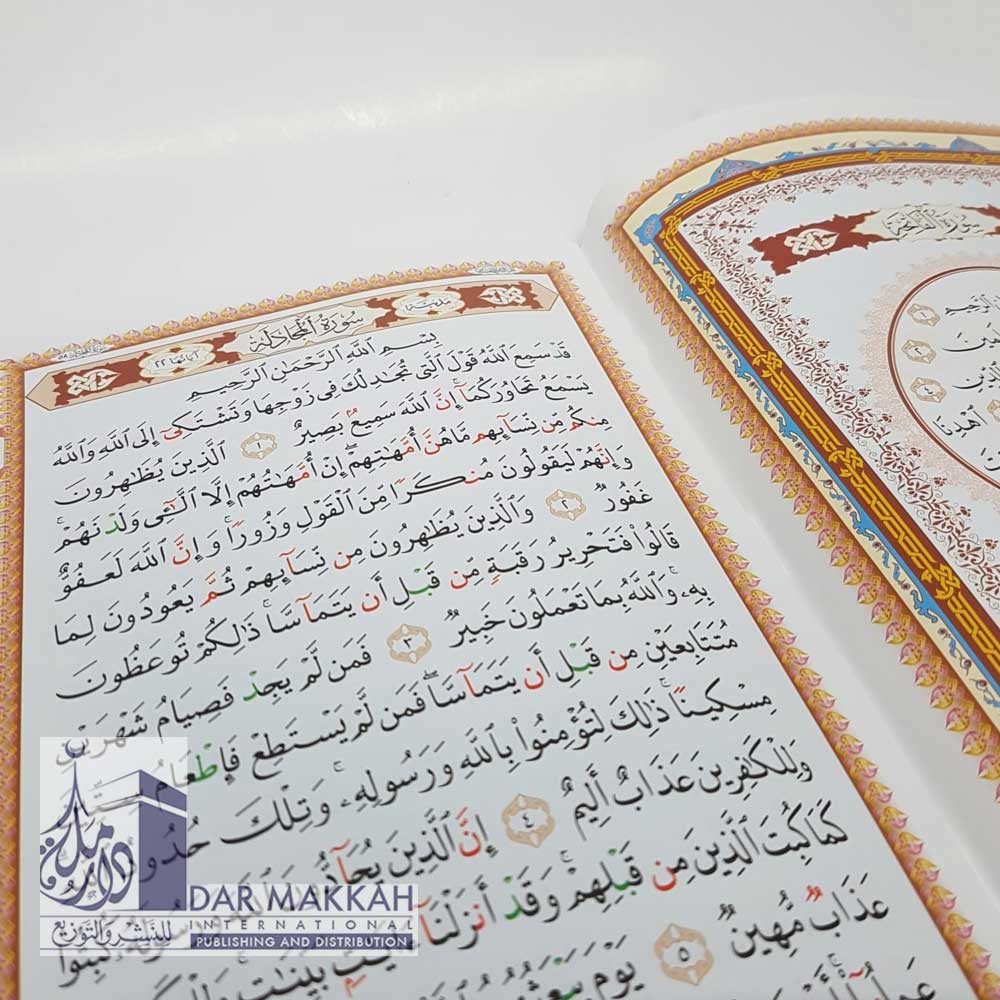 سُورَةُ ٱلْمُجَادلَة
مدنية
آياتها ٢٢
بِسْمِ ٱللَّهِ ٱلرَّحْمَٰنِ ٱلرَّحِيمِ
قَدْ سَمِعَ ٱللَّهُ قَوْلَ ٱلَّتِى تُجَٰدِلُكَ فِى زَوْجِهَا وَتَشْتَكِىٓ إِلَى ٱللَّهِ وَٱللَّهُ
يَسْمَعُ تَحَاوُرَكُمَآ ۚ إِنَّ ٱللَّهَ سَمِيعٌۢ بَصِيرٌ ١ ٱلَّذِينَ يُظَٰهِرُونَ
مِنكُم مِّن نِّسَآئِهِم مَّا هُنَّ أُمَّهَٰتِهِمْ ۖ إِنْ أُمَّهَٰتُهُمْ إِلَّا ٱلَّٰٓـِٔى وَلَدْنَهُمْ ۚ
وَإِنَّهُمْ لَيَقُولُونَ مُنكَرًا مِّنَ ٱلْقَوْلِ وَزُورًا ۚ وَإِنَّ ٱللَّهَ لَعَفُوٌّ
غَفُورٌ ٢ وَٱلَّذِينَ يُظَٰهِرُونَ مِن نِّسَآئِهِمْ ثُمَّ يَعُودُونَ لِمَا
قَالُوا۟ فَتَحْرِيرُ رَقَبَةٍ مِّن قَبْلِ أَن يَتَمَآسَّا ۚ ذَٰلِكُمْ تُوعَظُونَ
بِهِۦ ۚ وَٱللَّهُ بِمَا تَعْمَلُونَ خَبِيرٌ ٣ فَمَن لَّمْ يَجِدْ فَصِيَامُ شَهْرَيْنِ
مُتَتَابِعَيْنِ مِن قَبْلِ أَن يَتَمَآسَّا ۖ فَمَن لَّمْ يَسْتَطِعْ فَإِطْعَامُ سِتِّينَ
مِسْكِينًا ۚ ذَٰلِكَ لِتُؤْمِنُوا۟ بِٱللَّهِ وَرَسُولِهِۦ ۚ وَتِلْكَ حُدُودُ ٱللَّهِ
وَلِلْكَٰفِرِينَ عَذَابٌ أَلِيمٌ ٤ إِنَّ ٱلَّذِينَ يُحَآدُّونَ ٱللَّهَ وَرَسُولَهُۥ كُبِتُوا۟
كَمَا كُبِتَ ٱلَّذِينَ مِن قَبْلِهِمْ ۚ وَقَدْ أَنزَلْنَآ ءَايَٰتٍۭ بَيِّنَٰتٍ ۚ وَلِلْكَٰفِرِينَ
عَذَابٌ مُّهِينٌ ٥ يَوْمَ يَبْعَثُهُمُ
سُورَةُ ٱلْفَاتِحَة
ٱلرَّحِيمِ ١
٢
٣
ٱهْدِنَا
دار مكة
للنشر والتوزيع
DAR MAKKAH
INTERNATIONAL
PUBLISHING AND DISTRIBUTION